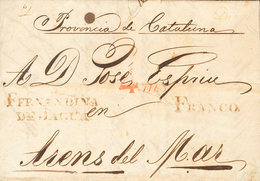 Provincia de Cataluna
A D José Espriu
FERNANDINA
DE JAGUA
en
FRANCO
Arens del Mar